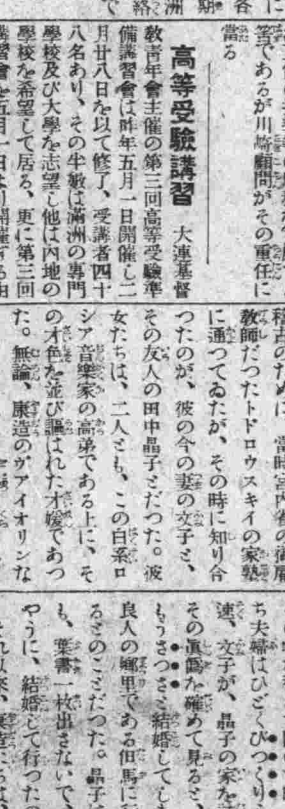 に 各 期 洲 絡 で
等であるが川崎顧問がその重任に
當る
高等受驗講習　大連基督
敎靑年會主催の第三回高等受驗準
備講習會は昨年五月一日開催し二
月廿八日を以て修了、受講者四十
八名あり、その半數は滿洲の專門
學校及び大學を志望し他は内地の
學校を希望して居る、更に第三回
講習會を五月一日より開催する由
稽古のために、當時宮内省の
敎師だつたトドロウスキイの家塾
に通つてゐたが、その時に知り合
つたのが、彼の今の妻の文子と、
その友人の田中晶子とだつた。彼
女たちは、二人とも、この白系ロ
シア音樂家の高弟である上に、そ
の才色を並び謳はれた才媛であつ
た。無論、康造のヴアイオリンな
ち夫婦はひどくびつくり
速、文子が、晶子の家を
その眞僞を確めて見ると、
もうさつさと結婚してし
良人の鄕里である但馬に
るとのことだつた。晶子
も、葉書一枚出さないで、
やうに、結婚して行つた
それ以來、